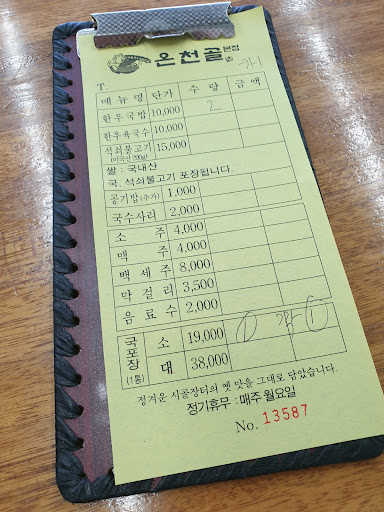 온천골 본점
T.
메뉴명 단가 수량 금액
한우국밥 10,000 2
한우육국수 10,000
석쇠불고기 (미국산 200g) 15,000
쌀 : 국내산
국. 석쇠불고기 포장됩니다.
공기밥(추가) 1,000
국수사리 2,000
소주 4,000
맥주 4,000
백세주 8,000
막걸리 3,500
음료수 2,000
국포장 (1통) 소 19,000
대 38,000
정겨운 시골장터의 옛 맛을 그대로 담았습니다.
정기휴무 : 매주 월요일
No. 13587